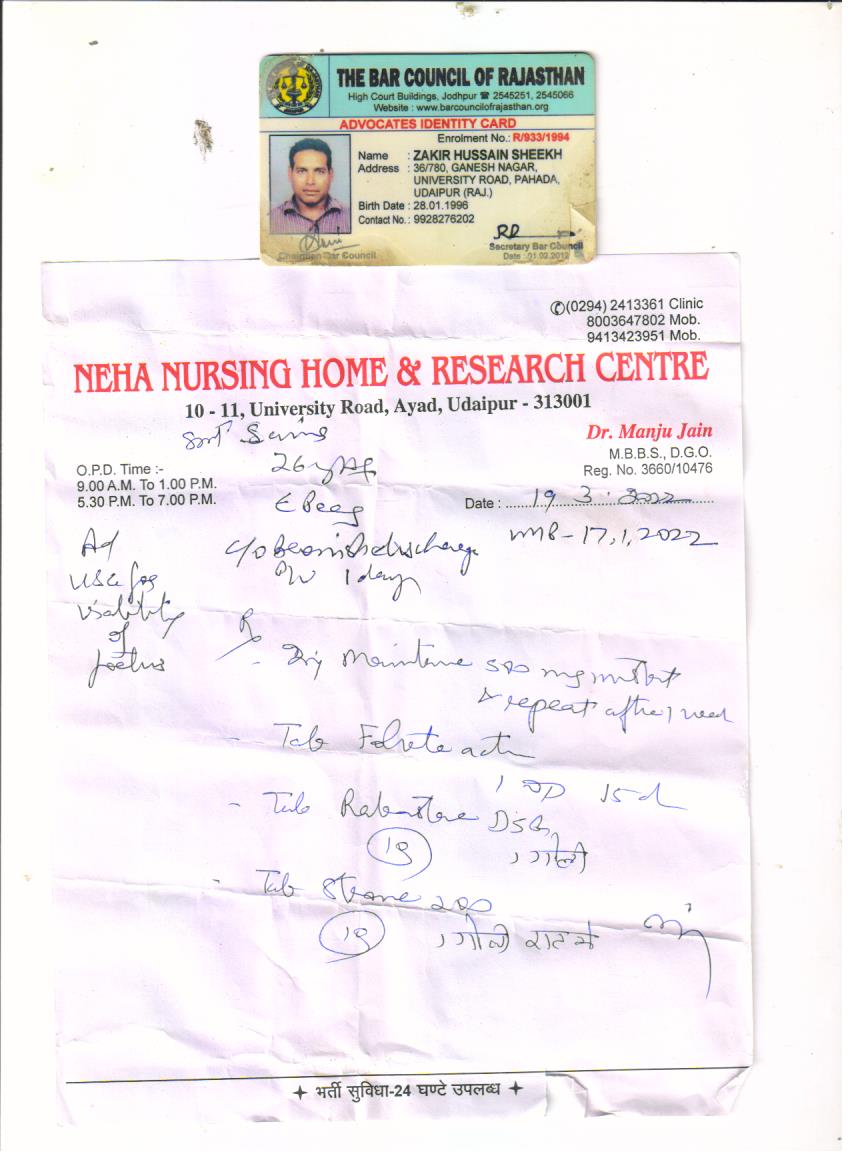 THE BAR COUNCIL OF RAJASTHAN
High Court Buildings, Jodhpur ☎ 2545251, 2545066
Website : www.barcouncilofrajasthan.org
ADVOCATES IDENTITY CARD
Enrolment No.: R/933/1994
Name : ZAKIR HUSSAIN SHEEKH
Address : 36/780, GANESH NAGAR,
UNIVERSITY ROAD, PAHADA,
UDAIPUR (RAJ.)
Birth Date : 28.01.1996
Contact No. : 9928276202
Chairman Bar Council
Secretary Bar Council
Date : 01.02.2012
✆(0294) 2413361 Clinic
8003647802 Mob.
9413423951 Mob.
NEHA NURSING HOME & RESEARCH CENTRE
10 - 11, University Road, Ayad, Udaipur - 313001
Smt
Dr. Manju Jain
M.B.B.S., D.G.O.
Reg. No. 3660/10476
O.P.D. Time :-
9.00 A.M. To 1.00 P.M.
5.30 P.M. To 7.00 P.M.
26
Date : 19 3 2022
LMP - 17,1,2022
Ad
USG for
viability
of
foetus
c/o discharge
P/V 1 day
Rx
- Inj 500 mg
& repeat after 1 week
- Tab Folvite
1 OD 15 d
- Tab DSR
10
1 गोली
- Tab 200
10
1 गोली रात को
✦ भर्ती सुविधा-24 घण्टे उपलब्ध ✦